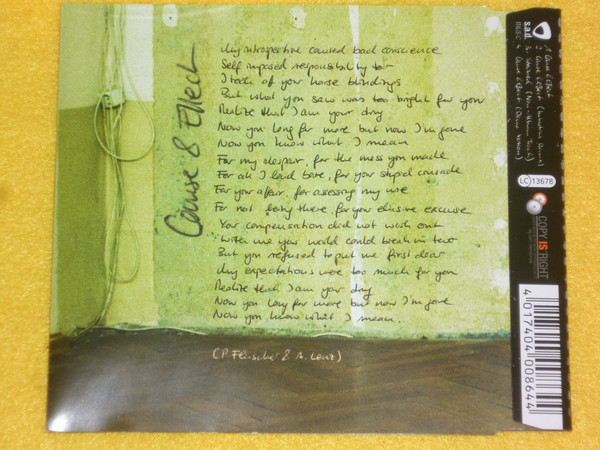 Cause & Effect
My introspective caused bad conscience
Self imposed responsibility to
I took of your horse blindings
But what you saw was too bright for you
Realize that I am your drug
Now you long for more but now I'm gone
Now you know what I mean
For my despair, for the mess you made
For all I laid bare, for your stupid crusade
For your affair, for assessing my use
For not being there, for your elusive excuse
Your compensation did not wash out
With me your world could break in two
But you refused to put me first dear
My expectations were too much for you
Realize that I am your drug
Now you long for more but now I'm gone
Now you know what I mean.
(P. Fleischer & A. Lenz)
s.a.d.
MUSIC
1 Cause & Effect
2 Cause & Effect
4 Cause & Effect (Demo Version)
LC 13678
COPY IS RIGHT
4 017404 008644